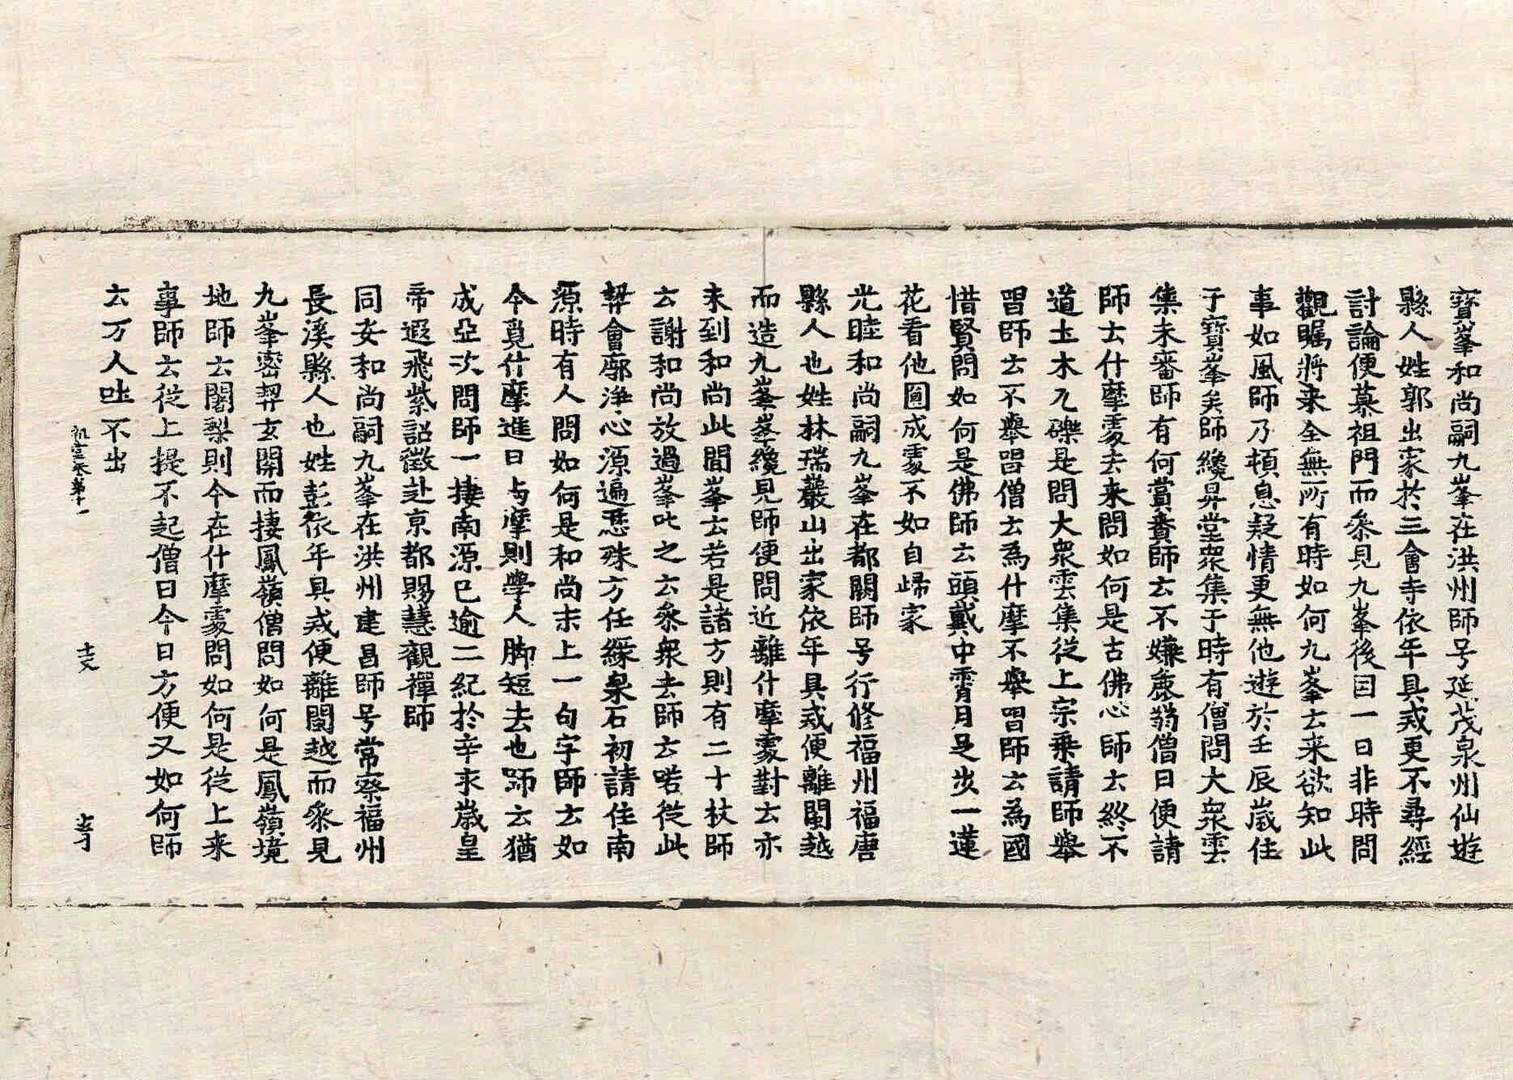 寶峯和尚嗣九峯在洪州師号延茂泉州仙遊
縣人姓郭出家於三會寺依年具戒更不尋經
討論便慕祖門而叅見九峯後因一日非時問
觀瞩將來全無所有時如何九峯云来欲知此
事如風師乃頓息疑情更無他遊於壬辰歳住
于寶峯矣師纔昇堂衆集于時有僧問大衆雲
集未審師有何賞賚師云不嫌麁弱僧曰便請
師云什摩處去来問如何是古佛心師云終不
道土木瓦礫是問大衆雲集從上宗乗請師舉
唱師云不舉唱僧云為什摩不舉唱師云為國
惜賢問如何是佛師云頭戴中霄月足步一蓮
花看他圓成處不如自歸家
光睦和尚嗣九峯在都闕師号行修福州福唐
縣人也姓林瑞巖山出家依年具戒便離閩越
而造九峯峯纔見師便問近離什摩處對云亦
未到和尚此間峯云若是諸方則有二十杖師
云謝和尚放過峯叱之云叅衆去師云喏從此
契會廓淨心源遍歴殊方任緣泉石初請住南
源時有人問如何是和尚末上一句字師云如
今覓什摩進曰与摩則學人脚短去也師云猶
成亞次問師一棲南源已逾二紀於辛未歳皇
帝遐飛紫詔徵赴京都賜慧觀禪師
同安和尚嗣九峯在洪州建昌師号常察福州
長溪縣人也姓彭依年具戒便離閩越而叅見
九峯密契玄關而捿鳳嶺僧問如何是鳳嶺境
地師云闍梨則今在什摩處問如何是從上来
事師云從上提不起僧曰今日方便又如何師
云万人吐不出
祖堂卷第十一
十二丈
孝才